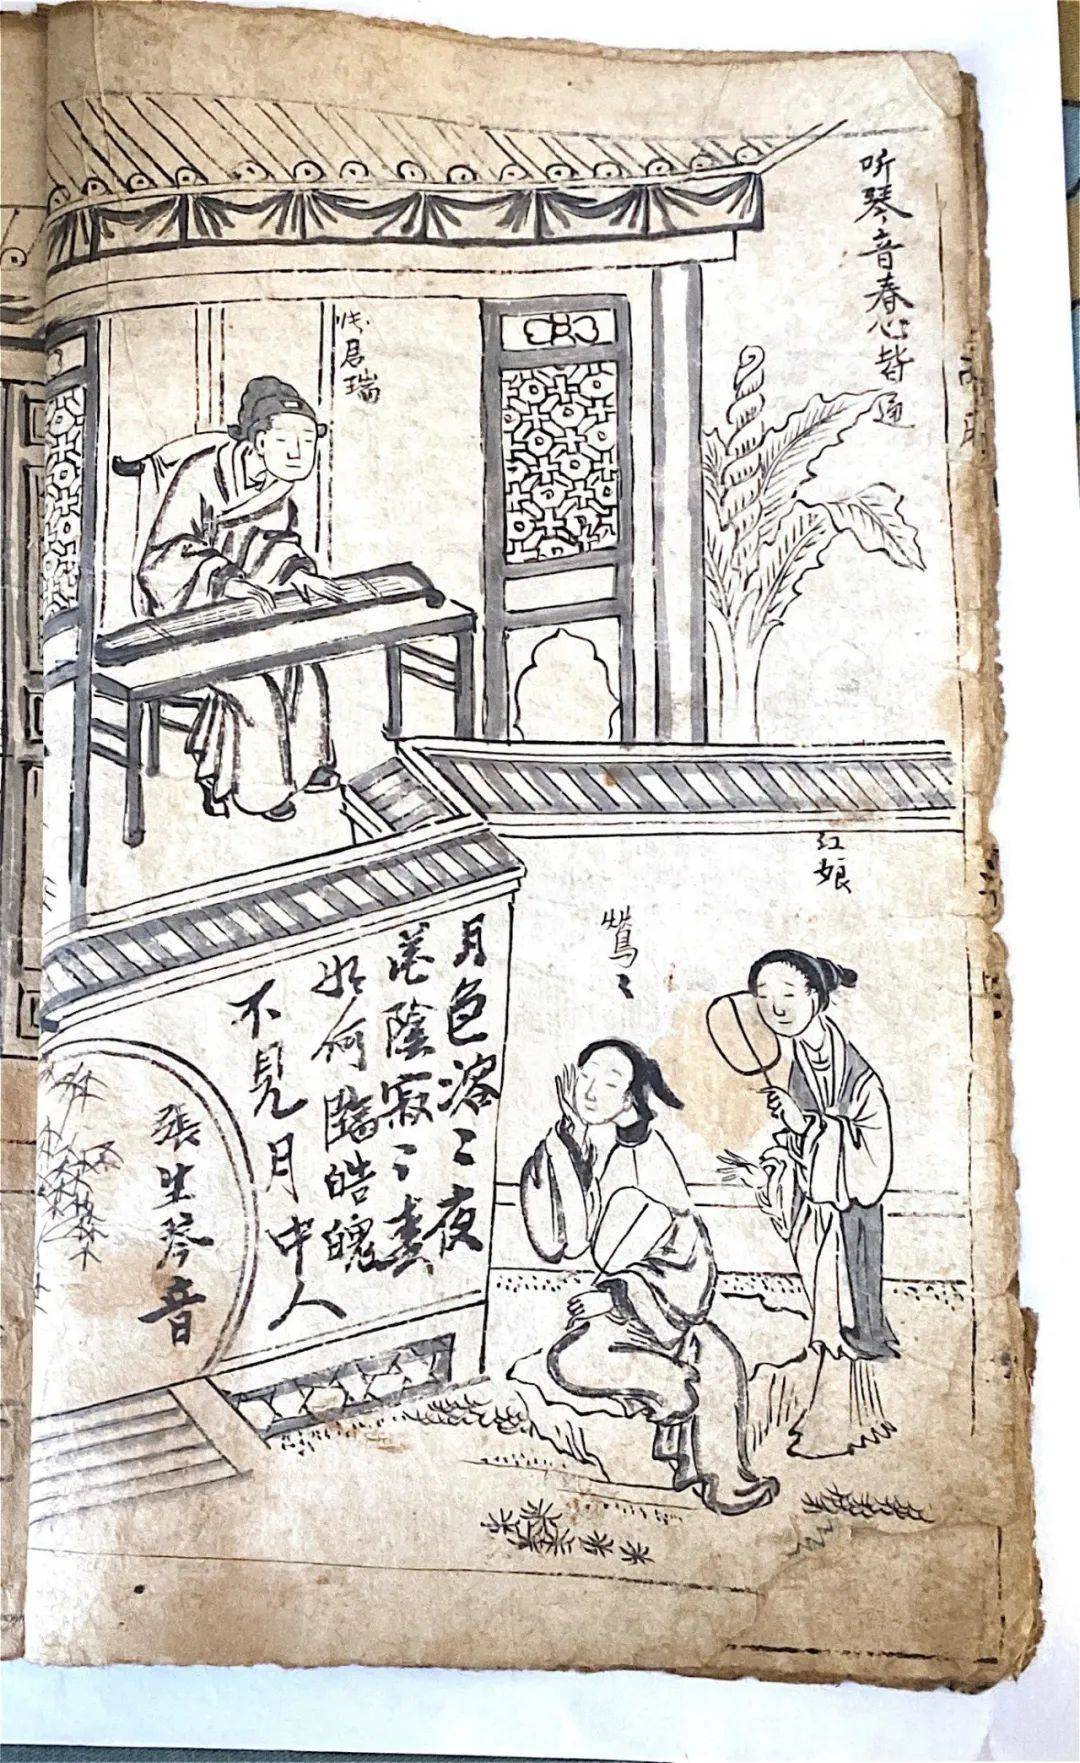 听琴音春心皆通
君瑞
红娘
鶯〻
月色溶〻夜
花陰寂〻春
如何臨皓魄
不見月中人
張生琴音